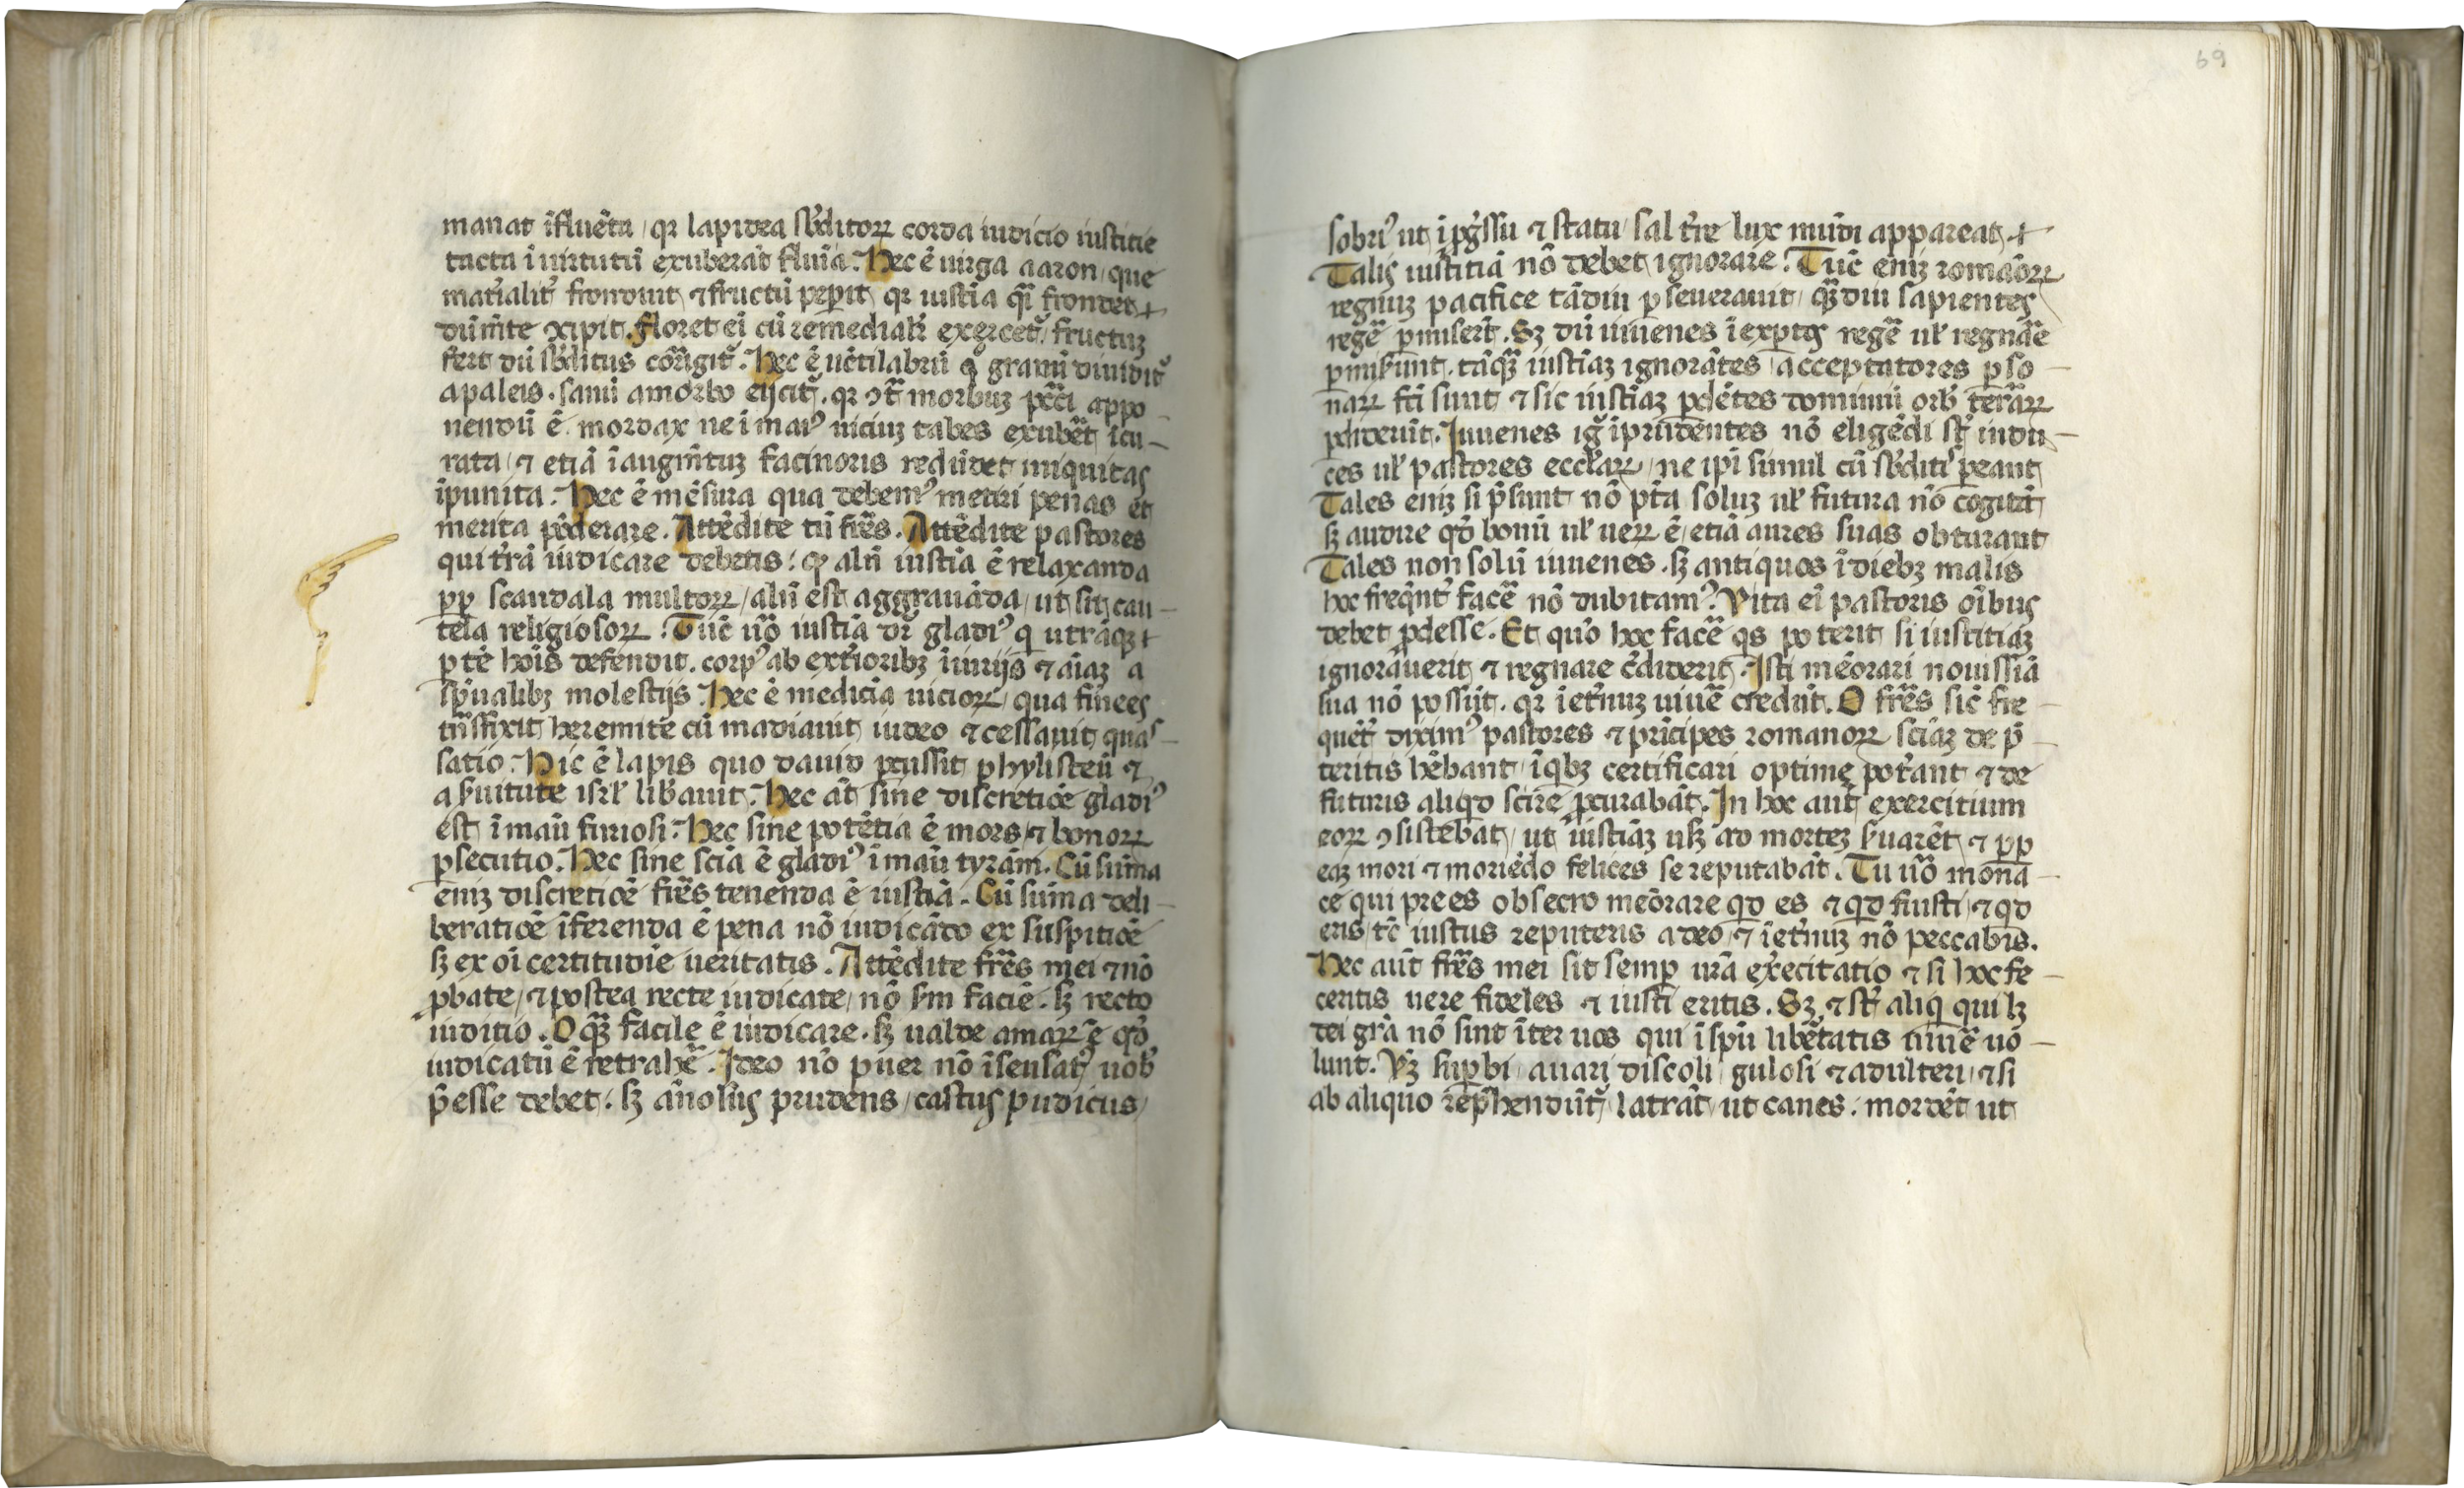 manat ĩfluẽta / qꝛ lapidea sb̃ditoꝝ corda iudicio iustitie
tacta ĩ uirtutũ exuberãt fluĩa. Hec ẽ uirga aaron / que
mat̃ialit̃ fronduit / ⁊ fructũ pep̃it qꝛ iustĩa qñ frondet
dũ mẽte ꝯcipit. floret eĩ cũ remedialit̃ exercet᷑ / fructuʒ
fert dũ sb̃ditus corrigit᷑. Hec ẽ uẽtilabrũ q̊ granũ diuidit᷑
a paleis. sanũ a morbo eijcit᷑. qꝛ ꝯt̃ morbuʒ pccĩ appo
nendũ ẽ mordax ne ĩ maiꝰ uiciuʒ tabes exubẽt ĩcu
rata / ⁊ etiã ĩ augmẽtuʒ facinoris redũdet iniquitas
ĩpunita. Hec ẽ mẽsura qua debemꝰ metiri penas et
merita põderare. Attẽdite tũ fr̃es. Attẽdite pastores
qui t̃rã iudicare debetis: qꝛ alñ iustĩa ẽ relaxanda
ꝓp̃ scandala multoꝝ / alñ est aggrauãda / ut sit cau
tela religiosoꝝ. Tũc ũo iustĩa dr̃ gladiꝰ q̃ utrãqʒ
ꝑtẽ hoĩs defendit. corpꝰ ab ext̃ioribʒ ĩiurijs ⁊ aĩaʒ a
sp̃ualibʒ molestijs. Hec ẽ medicĩa uicioꝝ / qua finees
trãsfixit heremite cũ madianit iudeo ⁊ cessauit quas
satio. Hic ẽ lapis quo dauid ꝑcussit phylisteũ ⁊
a s̃uitute isrl̃ lib̃auit. Hec ãt sine discretiõe gladiꝰ
est ĩ manũ furiosi. Hec sine potẽtia ẽ mors / ⁊ bonoꝝ
ꝑsecutio. Hec sine scĩa ẽ gladiꝰ ĩ manũ tyrãni. Cũ sũma
eniʒ discretiõe fr̃es tenenda ẽ iustĩa. Cũ sũma deli
beratiõe ĩferenda ẽ pena nõ iudicãdo ex suspitiõe
sʒ ex oĩ certitudĩe ueritatis. Attẽdite fr̃es mei ⁊ nõ
ꝓbate / ⁊ postea recte iudicate / nõ sm̃ faciẽ. sʒ recto
iuditio. O qʒ̃ facile ẽ iudicare. sʒ ualde amaꝝ ẽ qď
iudicatũ ẽ retrahẽ. Ideo nõ puer nõ ĩsensatꝰ uob̃
p̃esse debet. sʒ ãnosus prudens / castus pudicus /
69
sobriꝰ ut ĩ ꝓg̃ssu ⁊ statu / sal t̃re lux mũdi appareat.
Talis iustitiã nõ debet ignorare. Tũc eniʒ romãoꝝ
regnuʒ pacifice tãdiu ꝑseuerauit / qʒ̃diu sapientes
regẽ ꝑmiserũt. Sʒ dũ iuuenes ĩexꝑtos regẽ ul̃ regnãe
ꝑmiserunt. tãqʒ̃ iustĩaʒ ignorãtes / acceptatores ꝑso
naꝝ fc̃i sunt ⁊ sic iustĩaʒ ꝑdẽtes dominiũ orb̃ terraꝝ
ꝑdiderũt. Iuuenes ig̃ ĩprudẽntes nõ eligẽdi st̃ in du
ces ul̃ pastores eccl̃iaꝝ / ne ipĩ simul cũ sb̃ditꝭ ꝑeant
Tales eniʒ si p̃sunt nõ pt̃ita soluʒ ul̃ futura nõ cogitãt
sʒ audire qď bonũ ul̃ ueꝝ ẽ / etiã aures suas obturant
Tales non solũ iuuenes. sʒ antiquos ĩ diebʒ malis
hoc freq̃nt̃ facẽ nõ dubitamꝰ. Vita eĩ pastoris oĩbus
debet ꝓdesse. Et quõ hoc facẽ qs poterit si iustitiaʒ
ignorauerit ⁊ regnare c̃diderit. Isti mẽorari nouissĩa
sua nõ possũt. qꝛ ĩ et̃nuʒ uiuẽ credũt. O fr̃es sic̃ fre
quẽt̃ diximꝰ pastores ⁊ prĩcipes romanoꝝ sciãʒ de p̃
teritis hẽbant / ĩ qbʒ certificari optime pot̃ant ⁊ de
futuris aliqd scire ꝓcurabãt. In hoc aut̃ exercitium
eoꝝ ꝯsistebat / ut iustĩaʒ usqʒ ad morteʒ s̃uarẽt / ⁊ ꝓp̃
eaʒ mori ⁊ moriẽdo felices se reputabãt. Tu ũo mona
ce qui prees obsecro mẽorare qd es ⁊ qd fuisti / ⁊ qd
eris / tc̃ iustus reputeris a deo / ⁊ ĩ et̃nuʒ nõ peccabis.
Hec aut̃ fr̃es mei sit semꝑ ur̃a ex̃ecitatio ⁊ si hoc fe
ceritis uere fideles ⁊ iusti eritis. Sʒ ⁊ st̃ aliq̃ qui lʒ
dei grã nõ sint ĩter uos qui ĩ spũ lib̃tatis uiuẽ uo
lunt. Vʒ sup̃bi / auari discoli / gulosi ⁊ adulteri / ⁊ si
ab aliquo rep̃hendũt᷑ / latrãt ut canes: mordẽt ut